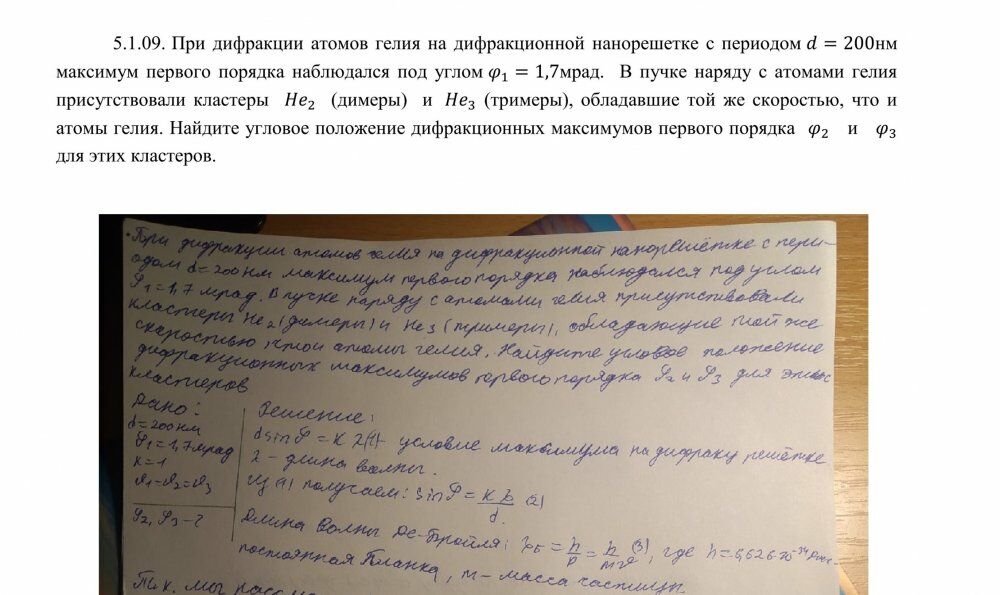 5.1.09. При дифракции атомов гелия на дифракционной нанорешетке с периодом d = 200нм
максимум первого порядка наблюдался под углом φ₁ = 1,7мрад. В пучке наряду с атомами гелия
присутствовали кластеры He₂ (димеры) и He₃ (тримеры), обладавшие той же скоростью, что и
атомы гелия. Найдите угловое положение дифракционных максимумов первого порядка φ₂ и φ₃
для этих кластеров.
При дифракции атомов гелия на дифракционной нанорешётке с пери-
одом d = 200 нм максимум первого порядка наблюдался под углом
φ₁ = 1,7 мрад. В пучке наряду с атомами гелия присутствовали
кластеры He₂ (димеры) и He₃ (тримеры), обладающие той же
скоростью, что и атомы гелия. Найдите угловое положение
дифракционных максимумов первого порядка φ₂ и φ₃ для этих
кластеров
Дано:
d = 200 нм
φ₁ = 1,7 мрад
k = 1
υ₁ = υ₂ = υ₃
φ₂, φ₃ - ?
Решение:
d sin φ = k λ (1) - условие максимума на дифрак решётке
λ - длина волны.
Из (1) получаем: sin φ = kλ/d (2)
Длина волны Де-Бройля: λ = h/p = h/mυ (3), где h = 6,626·10⁻³⁴
постоянная Планка, m - масса частицы
Т.к. мы